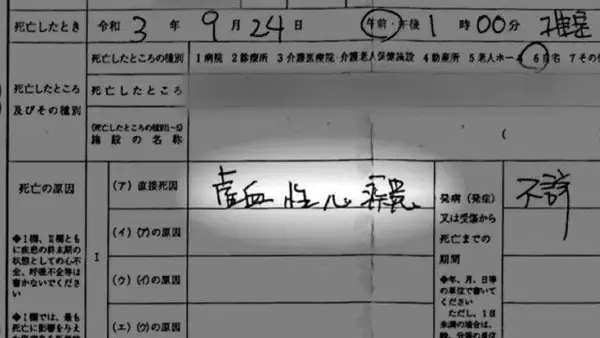 死亡したとき 令和 3 年 9 月 24 日 午前・午後 1 時 00 分 推定
死亡したところの種別 1 病院 2 診療所 3 介護医療院・介護老人保健施設 4 助産所 5 老人ホーム 6 自宅 7 その
死亡したところ
及びその種別
死亡したところ
(死亡したところの種別1~5)
施設の名称
(
死亡の原因
◆Ⅰ欄、Ⅱ欄ともに疾患の終末期の状態としての心不全、呼吸不全等は書かないでください
◆Ⅰ欄では、最も死亡に影響を与え
Ⅰ
(ア) 直接死因 虚血性心疾患
(イ) (ア)の原因
(ウ) (イ)の原因
(エ) (ウ)の原因
発病(発症)
又は受傷から
死亡までの
期間
不詳
◆年、月、日等
の単位で書いて
ください
ただし、1日
未満の場合は、
時、分等の単位